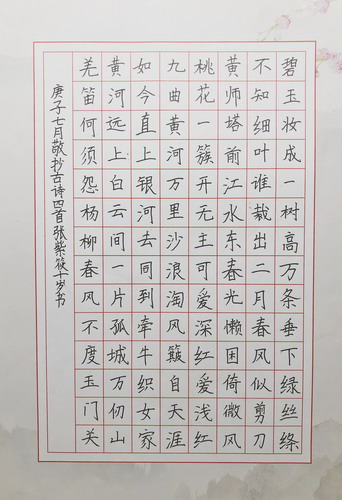 碧玉妆成一树高万条垂下绿丝绦
不知细叶谁裁出二月春风似剪刀
黄师塔前江水东春光懒困倚微风
桃花一簇开无主可爱深红爱浅红
九曲黄河万里沙浪淘风簸自天涯
如今直上银河去同到牵牛织女家
黄河远上白云间一片孤城万仞山
羌笛何须怨杨柳春风不度玉门关
庚子七月敬抄古诗四首张紫筱十岁书